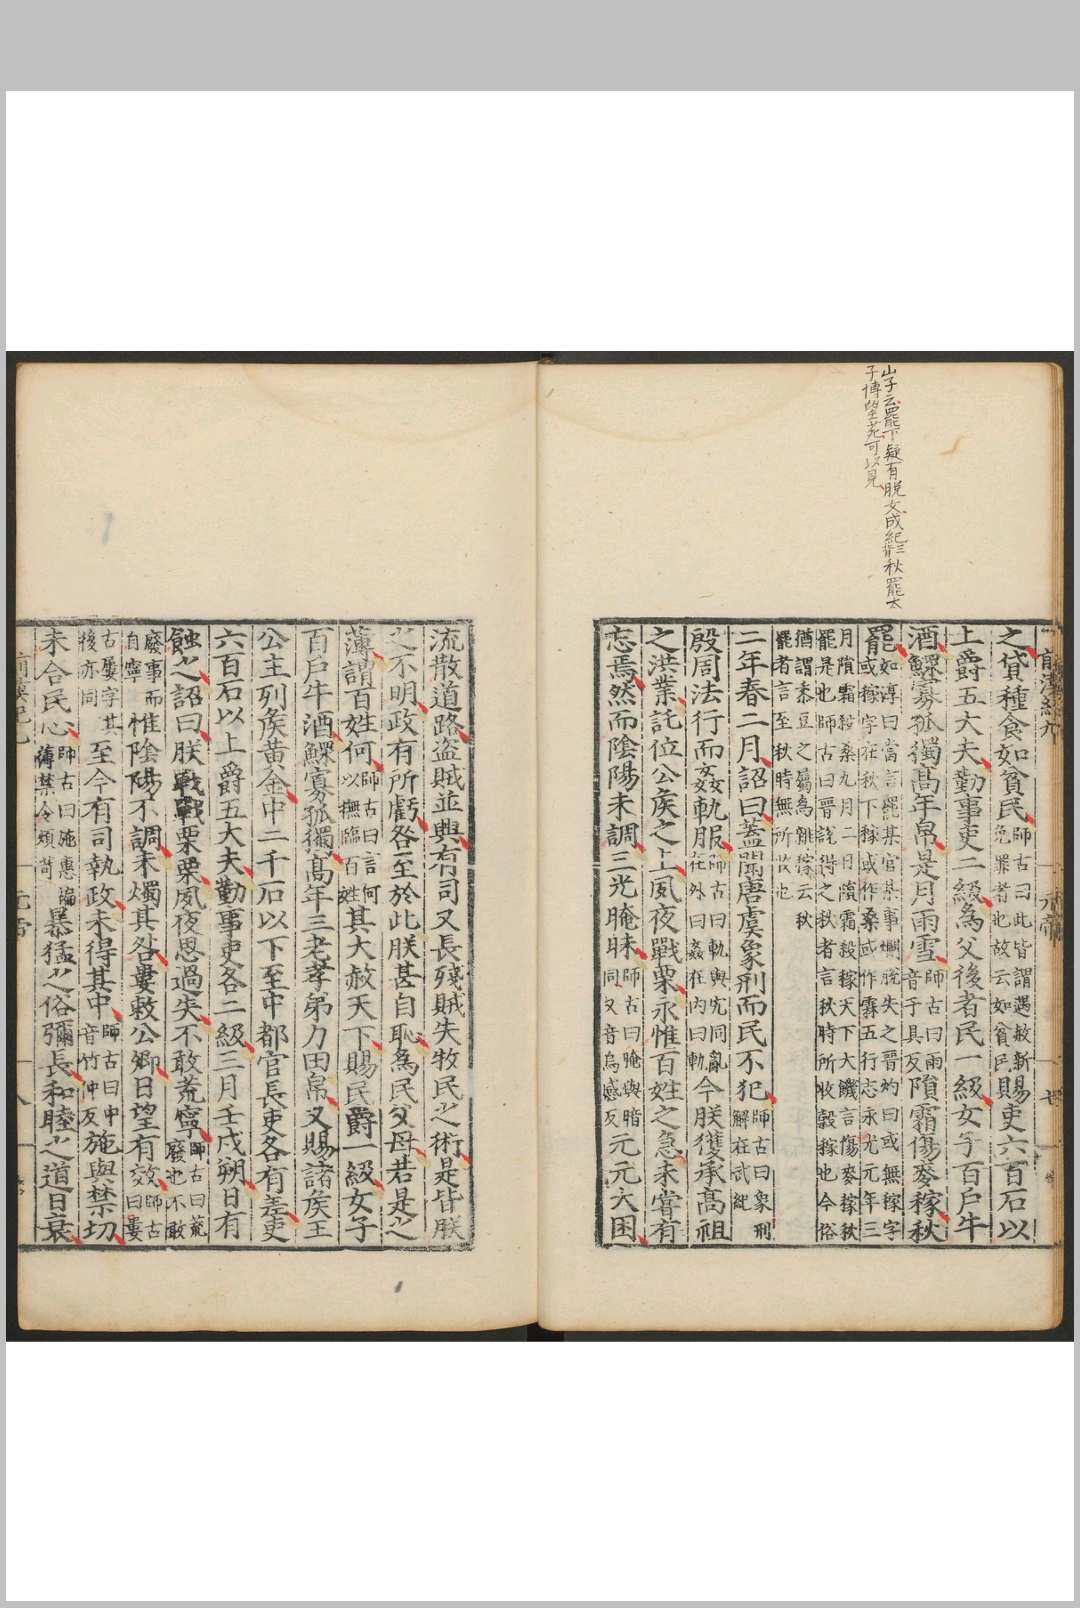 山子云罷下疑有脫文成紀三秋罷太
子博望苑可以見
之貸種食如貧民師古曰此皆謂遇赦新免罪者也故云如貧民賜吏六百石以
上爵五大夫勤事吏二級為父後者民一級女子百戶牛
酒鰥寡孤獨高年帛是月雨雪師古曰雨音于具反隕霜傷麥稼秋
罷如淳曰當言罷某官某事爛脫失之晉灼曰或無稼字或稼字在秋下稼或作桑或作霖五行志永光元年三
月隕霜殺桑九月二日隕霜殺稼天下大饑言傷麥稼秋罷是也師古曰晉說得之秋者言秋時所收穀稼也今俗
猶謂黍豆之屬為雜稼云秋罷者言至秋時無所收也
二年春二月詔曰蓋聞唐虞象刑而民不犯師古曰象刑解在武紀
殷周法行而姦軌服師古曰軌與宄同亂在外曰姦在內曰軌今朕獲承高祖
之洪業託位公矦之上夙夜戰栗永惟百姓之急未嘗有
忘焉然而陰陽未調三光晻昧師古曰晻與暗同又音烏感反元元大困
流散道路盜賊並興有司又長殘賊失牧民之術是皆朕
之不明政有所虧咎至於此朕甚自恥為民父母若是之
薄謂百姓何師古曰言何以撫臨百姓其大赦天下賜民爵一級女子
百戶牛酒鰥寡孤獨高年三老孝弟力田帛又賜諸矦王
公主列矦黃金中二千石以下至中都官長吏各有差吏
六百石以上爵五大夫勤事吏各二級三月壬戌朔日有
蝕之詔曰朕戰戰栗栗夙夜思過失不敢荒寧師古曰荒廢也不敢
廢事而自寧惟陰陽不調未燭其咎婁敕公卿日望有效師古曰婁
古屢字其後亦同至今有司執政未得其中師古曰中音竹仲反施與禁切
未合民心師古曰施惠褊薄禁令煩苛暴猛之俗彌長和睦之道日衰